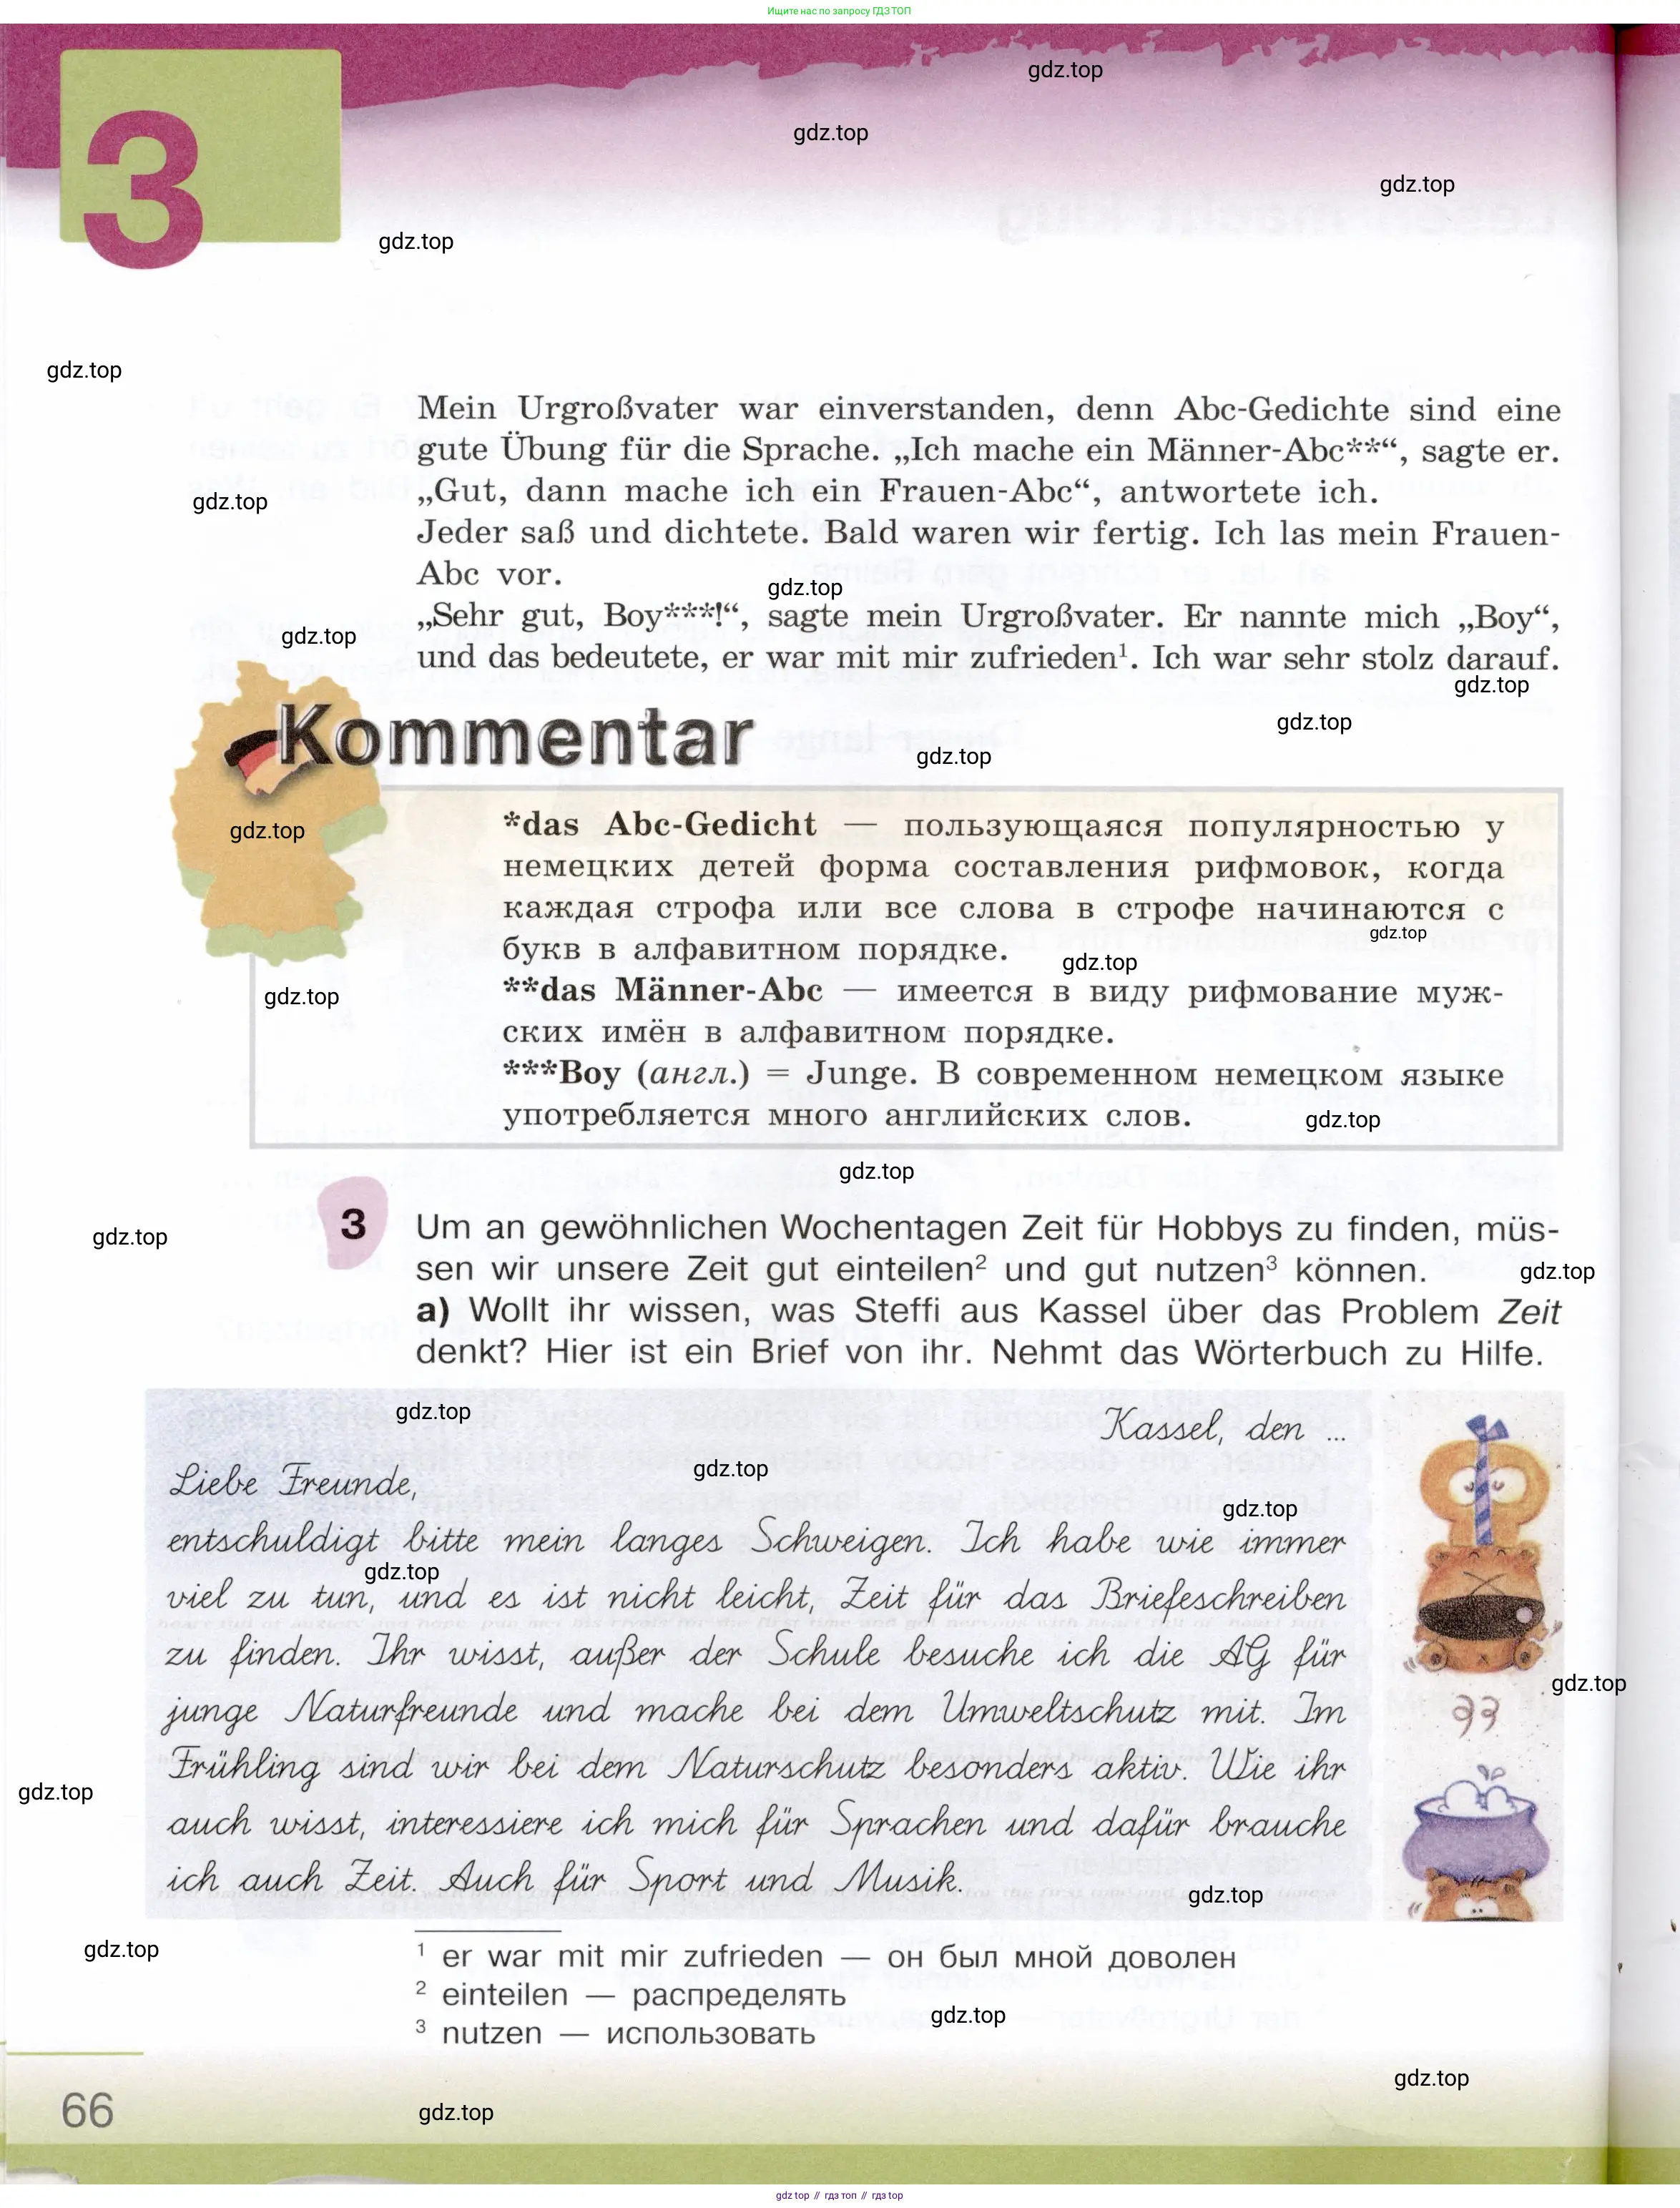 Ищите нас по запросу ГДЗ ТОП
gdz.top
gdz.top
gdz.top
3
gdz.top
gdz.top
Mein Urgroßvater war einverstanden, denn Abc-Gedichte sind eine
gute Übung für die Sprache. „Ich mache ein Männer-Abc**“, sagte er.
„Gut, dann mache ich ein Frauen-Abc“, antwortete ich.
gdz.top
Jeder saß und dichtete. Bald waren wir fertig. Ich las mein Frauen-
Abc vor.
gdz.top
„Sehr gut, Boy***!“, sagte mein Urgroßvater. Er nannte mich „Boy“,
gdz.top
und das bedeutete, er war mit mir zufrieden¹. Ich war sehr stolz darauf.
gdz.top
gdz.top
Kommentar
gdz.top
*das Abc-Gedicht — пользующаяся популярностью у
gdz.top
немецких детей форма составления рифмовок, когда
каждая строфа или все слова в строфе начинаются с
gdz.top
букв в алфавитном порядке.
gdz.top
**das Männer-Abc — имеется в виду рифмование муж-
gdz.top
ских имён в алфавитном порядке.
***Boy (англ.) = Junge. В современном немецком языке
употребляется много английских слов.
gdz.top
gdz.top
3
Um an gewöhnlichen Wochentagen Zeit für Hobbys zu finden, müs-
gdz.top
sen wir unsere Zeit gut einteilen² und gut nutzen³ können.
gdz.top
a) Wollt ihr wissen, was Steffi aus Kassel über das Problem Zeit
denkt? Hier ist ein Brief von ihr. Nehmt das Wörterbuch zu Hilfe.
gdz.top
Kassel, den ...
gdz.top
Liebe Freunde,
gdz.top
entschuldigt bitte mein langes Schweigen. Ich habe wie immer
gdz.top
viel zu tun, und es ist nicht leicht, Zeit für das Briefeschreiben
zu finden. Ihr wisst, außer der Schule besuche ich die AG für
gdz.top
junge Naturfreunde und mache bei dem Umweltschutz mit. Im
Frühling sind wir bei dem Naturschutz besonders aktiv. Wie ihr
gdz.top
auch wisst, interessiere ich mich für Sprachen und dafür brauche
ich auch Zeit. Auch für Sport und Musik.
gdz.top
gdz.top
¹ er war mit mir zufrieden — он был мной доволен
² einteilen — распределять
gdz.top
³ nutzen — использовать
gdz.top
66
gdz.top
gdz top // гдз топ // gdz top